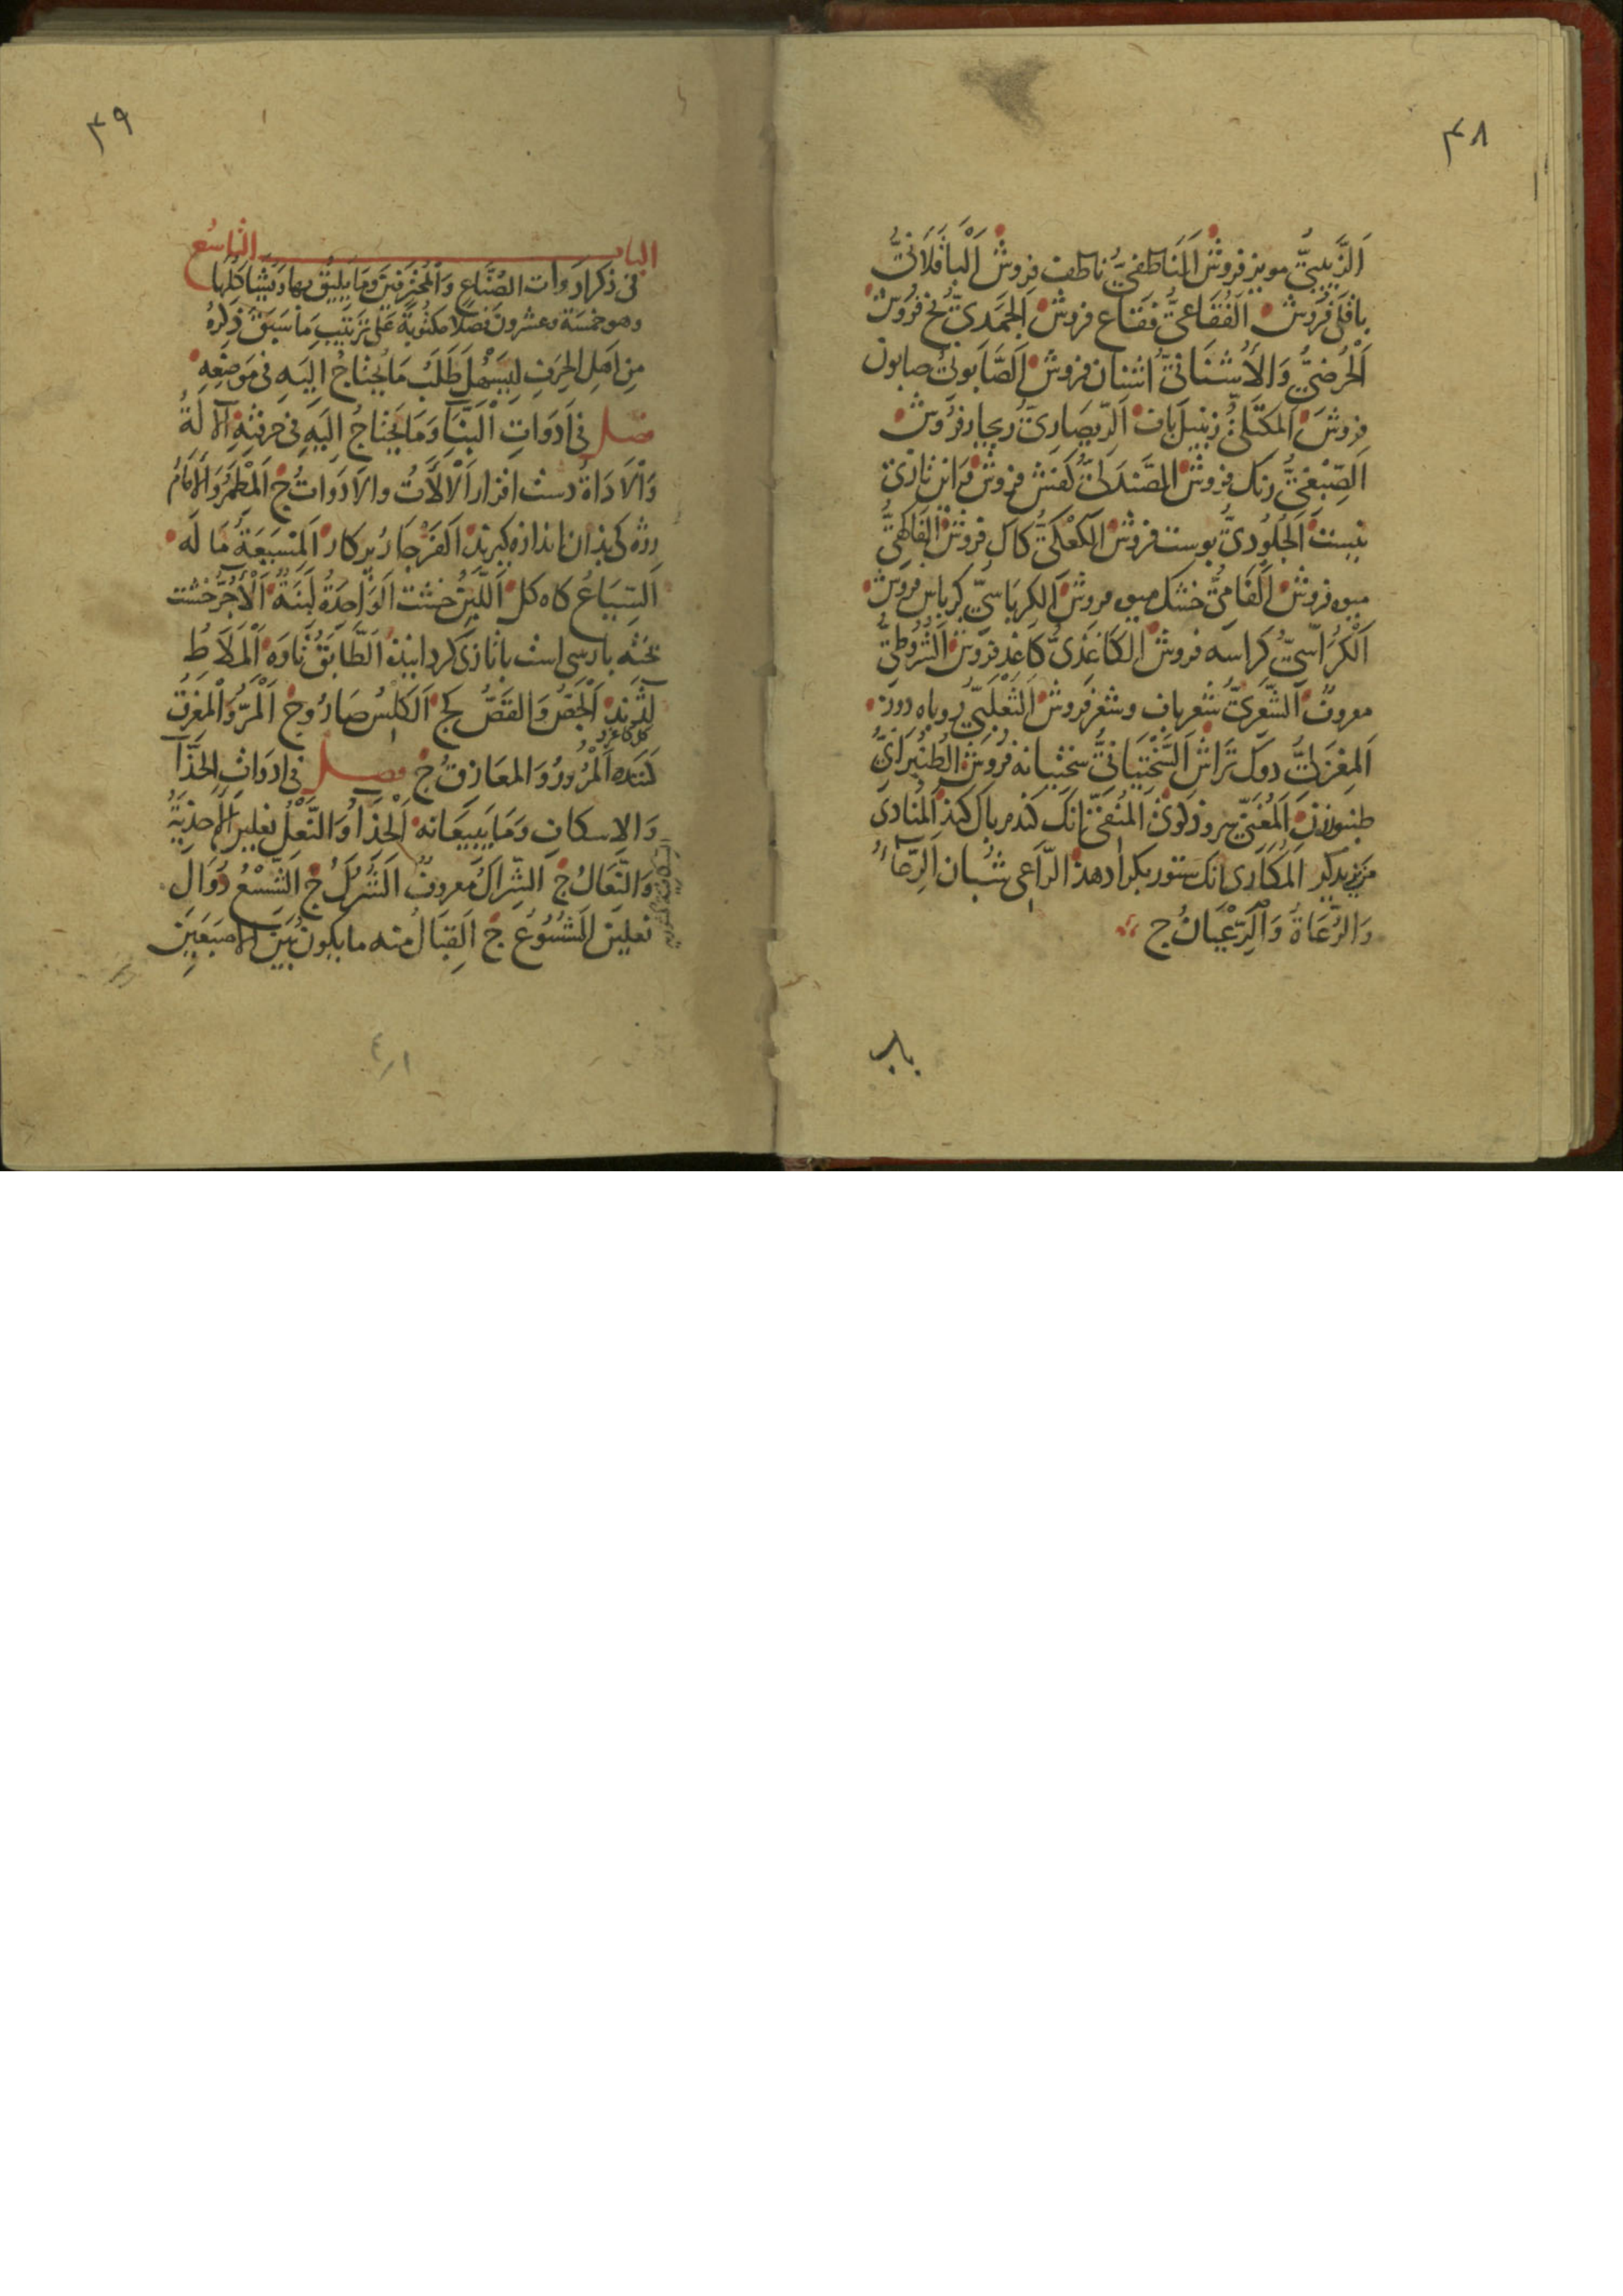 ۴۸
اَلزَّبِيبِيُّ مويز فروش اَلنَاطِفِيُّ ناطف فروش اَلْبَاقَلَانِيُّ
باقلى فروش اَلْفُقَاعِيُّ فقاع فروش اَلْجَمَدِيُّ يخ فروش
اَلْحُرُضِيُّ وَالْأُشْنَانِيُّ اشنان فروش اَلصَّابُونِيُّ صابون
فروش اَلمكتلىُّ زنبيل باف اَلرِّيصَارِيُّ ريجار فروش
اَلصِّبْغِيُّ رنك فروش اَلصَّنْدَلِيُّ كفش فروش
نيست اَلْجُلُودِيُّ بوست فروش اَلْكَعْكِيُّ كاك فروش اَلْفَاكِهِيُّ
ميوه فروش اَلْفَامِيُّ خشك ميوه فروش اَلْكِرْبَاسِيُّ كرباس فروش
اَلْكُرَّاسِيُّ كراسه فروش اَلْكَاغَذِيُّ كاغذ فروش اَلشُّرُوطِيُّ
معروف اَلشَّعْرِيُّ شعرباف وشعر فروش اَلثَّعْلَبِيُّ روباه دوز
اَلْمِغْزَلِيُّ دوك تراش اَلسَّخْتِيَانِيُّ سختيانه فروش اَلطُّنْبُرَانِيُّ
طنبور زن اَلْمُغَنِّي سروذ كوى اَلْمُنَقِّي انك كندم باك كند اَلْمُنَادِي
مزيد كر اَلْمُكَارِي انك ستور بكرا دهذ اَلرَّاعِي شبان اَلرِّعَاءُ
وَالرُّعَاةُ وَالرُّعْيَانُ ج
باب
۴۹
الباب التاسع
فى ذكر ادوات الصُّنَّاعِ وَالْمُحْتَرِفِينَ وَمَا يَلِيقُ بها وَيُشَاكِلُهَا
وهو خمسة وعشرون فصلا مكتوبة عَلى ترتيب مَا سَبَقَ ذكرهُ
مِن اَهل الحِرَفِ لِيَسْهُلَ طَلَبُ مَا يُحْتَاجُ اِلَيهِ فى مَوضِعِهِ
فصل فى اَدَوَاتِ اَلْبَنَّاء وَمَا يَحْتَاجُ اِلَيهِ فى حرفتِهِ اَلْآلَةُ
وَالْاَدَاةُ دست افزار اَلْآلَاتُ والاَدَوَاتُ ج اَلْمِطْمَرُ وَالْاِمَامُ
رژه كى بذان اندازه كيرند اَلْفَرْجَارُ بركار اَلْمِسْيَعَةُ مَا لَه
اَلسِّيَاعُ كاه كل اَللَّبِنُ خشت اَلْوَاحِدَةُ لَبِنَةٌ اَلْآجُرُّ خشت
بخته بارسى است بتازى كردانيذه اَلطَّابَقُ تاوه اَلْمِلَاطُ
لژند اَلْجَصُّ وَالقَصُّ كج اَلْكِلْسُ صارُوج اَلْمَرُّ وَالْمِعْزَقُ
كلنك اَلْمُرُورُ وَالمعَازقُ ج فصل فى ادوات الحَذَّاء
وَالاِسكاف وَمَا يَبِيعَانه اَلْحِذَاءُ وَالنَّعْلُ نعلين اَلْاَحْذِيَةُ
وَالنِّعَالُ ج اَلشِّرَاكُ معروف اَلشُّرُكُ ج اَلشِّسْعُ دوال
نعلين اَلشُّسُوعُ ج اَلْقِبَالُ منه ما يكون بَيْنَ الاصبَعَيْن